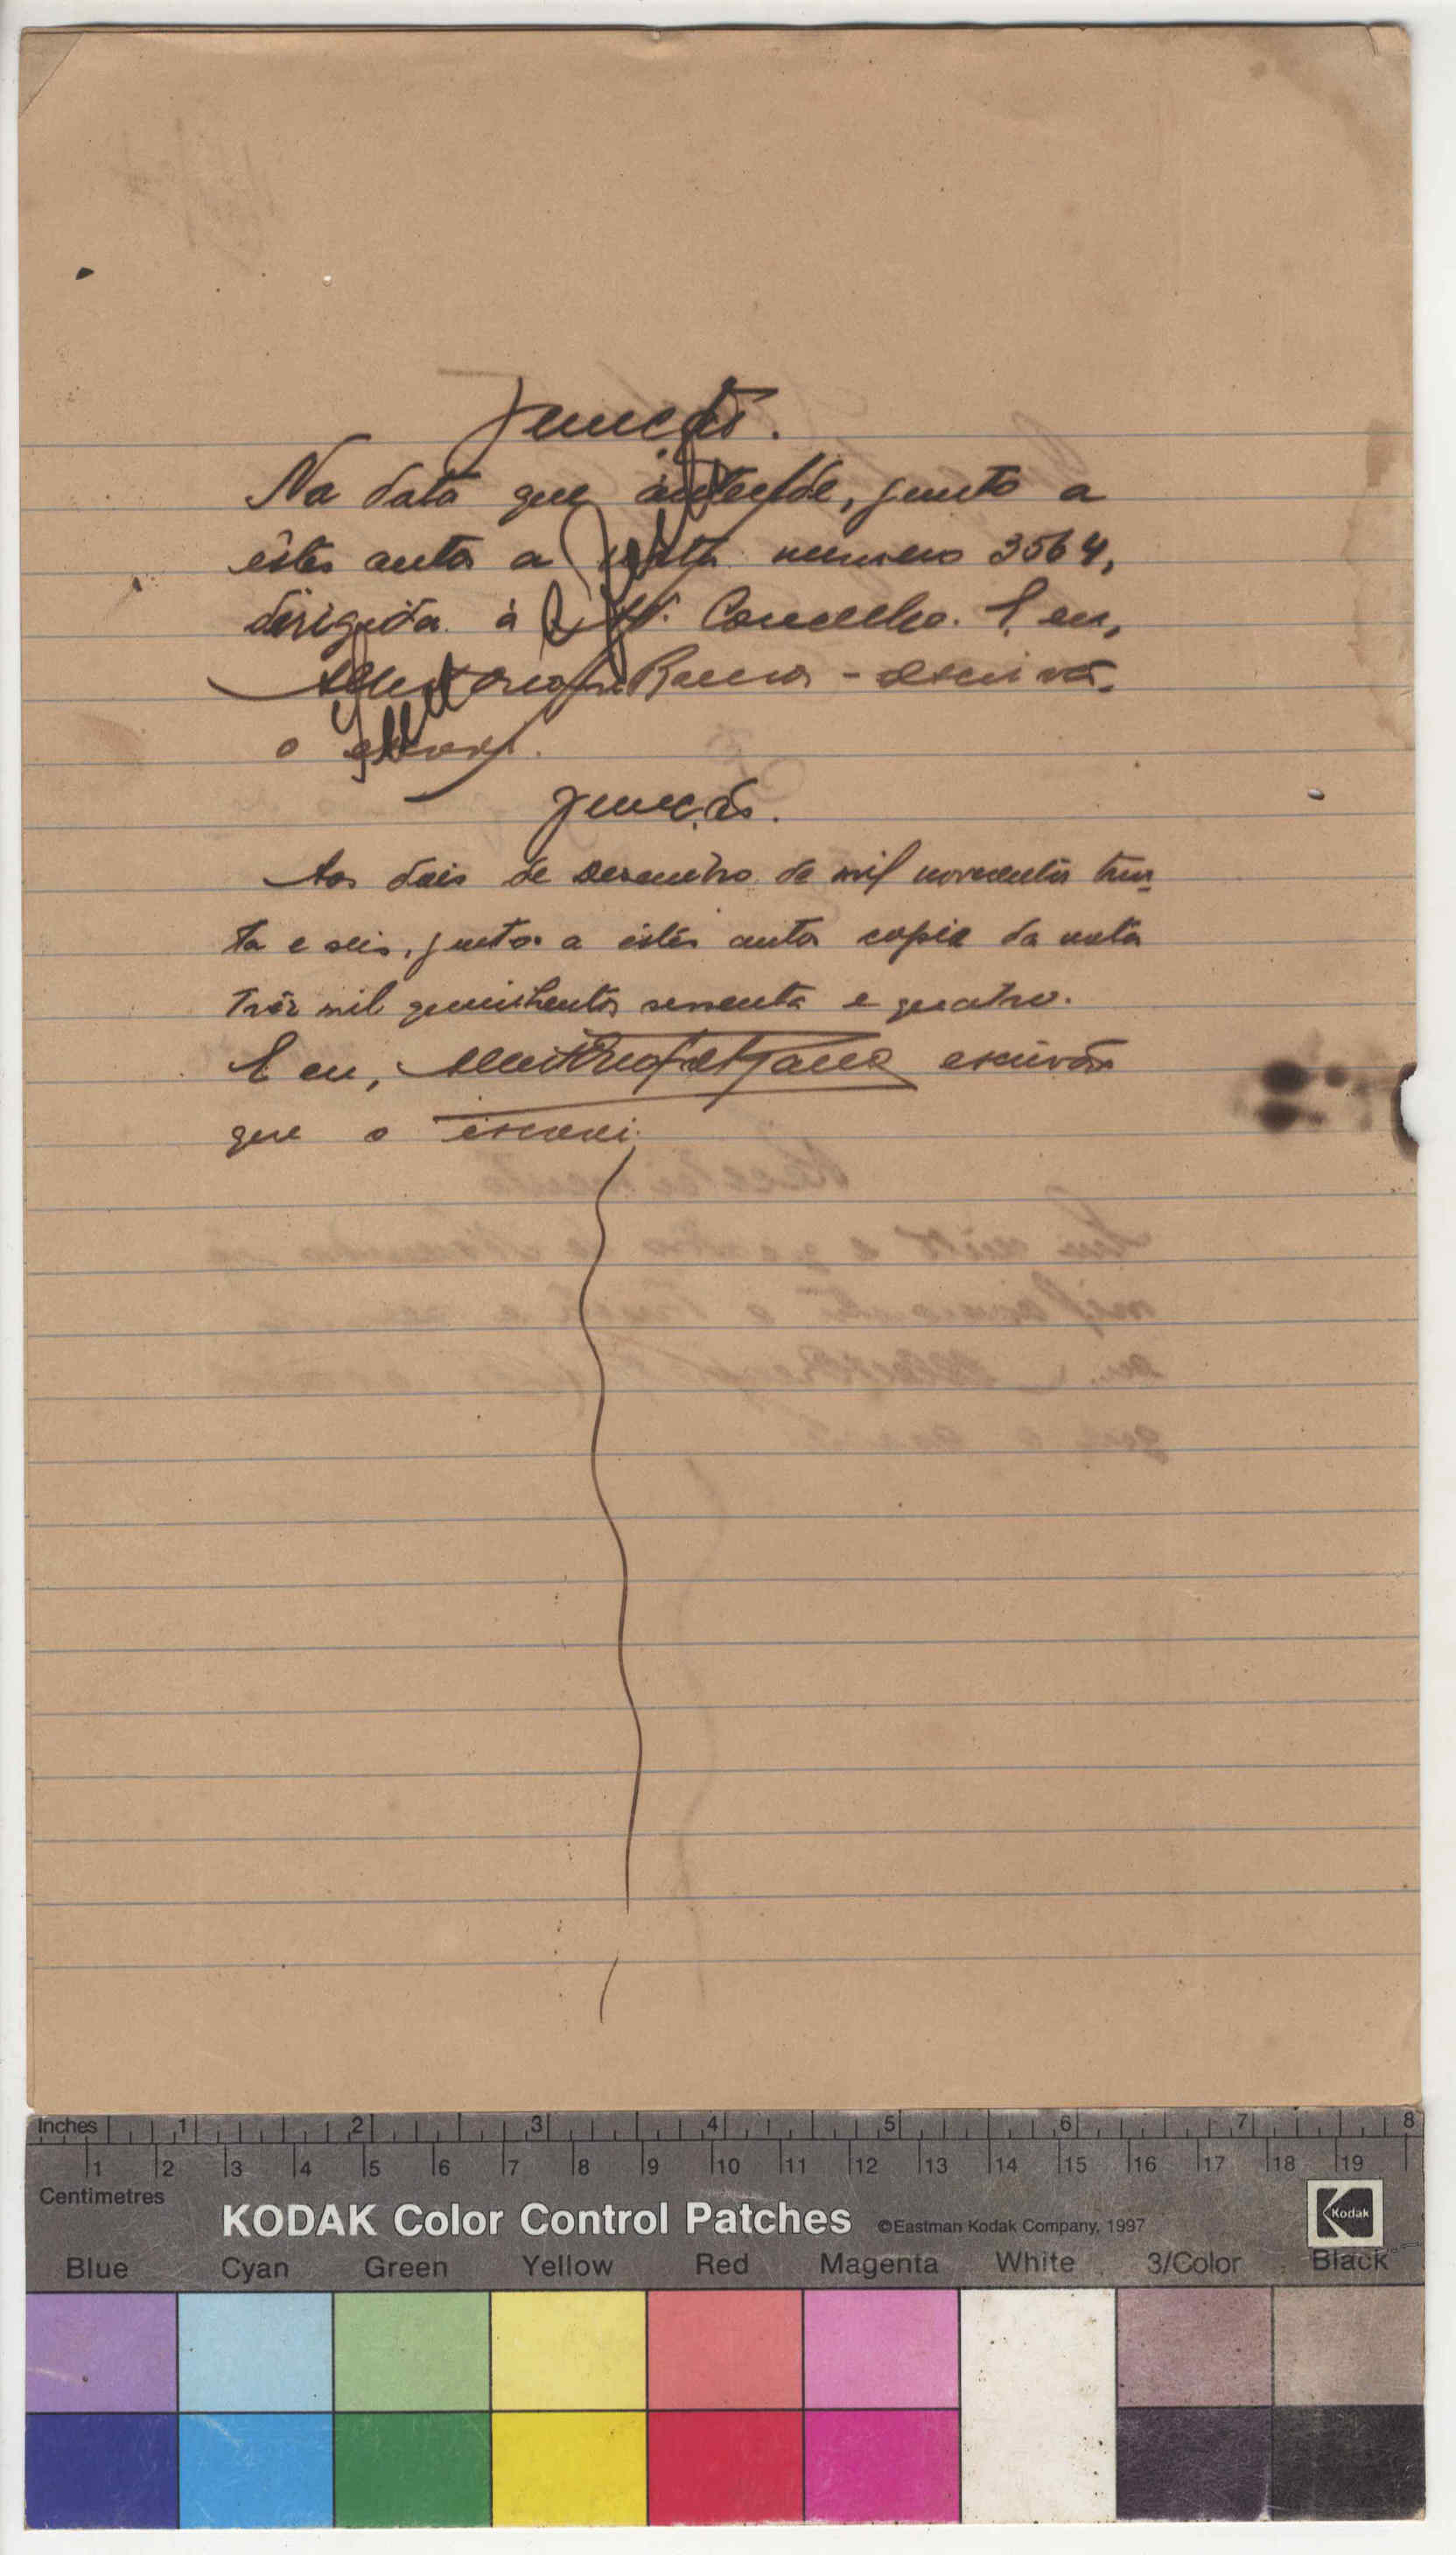 Junção.
Na data que antecede, junto a
êstes autos a nota numero 3564,
dirigida á Conselho. E eu,
Ramos - escrivão,
o escrevi.
Junção.
Aos dois de Dezembro de mil novecentos trin-
ta e seis, junto a êstes autos copia da nota
três mil quinhentos sessenta e quatro.
E eu, escrivão
que o escrevi.
Inches 1 2 3 4 5 6 7 8
1 2 3 4 5 6 7 8 9 10 11 12 13 14 15 16 17 18 19
Centimetres
KODAK Color Control Patches ©Eastman Kodak Company, 1997 Kodak
Blue Cyan Green Yellow Red Magenta White 3/Color Black